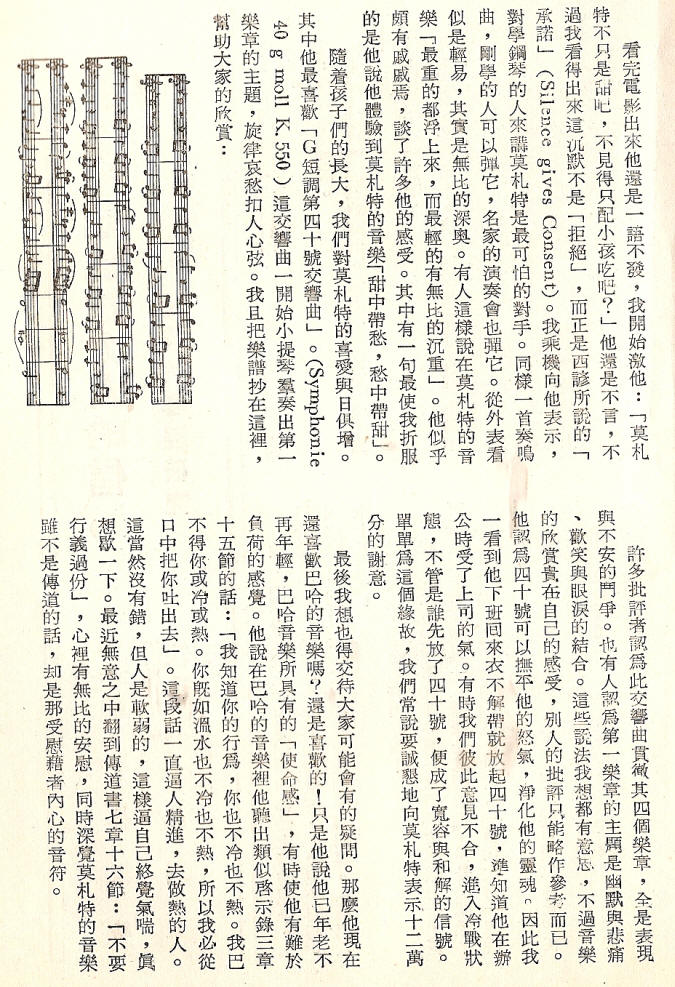 看完電影出來他還是一語不發,我開始激他:「莫札
特不只是甜吧,不見得只配小孩吃吧?」他還是不言,不
過我看得出來這沉默不是「拒絕」,而正是西諺所說的「
承諾」(Silence gives Consent)。我乘機向他表示,
對學鋼琴的人來講莫札特是最可怕的對手。同樣一首奏鳴
曲,剛學的人可以彈它,名家的演奏會也彈它。從外表看
似是輕易,其實是無比的深奧。有人這樣說在莫札特的音
樂「最重的都浮上來,而最輕的有無比的沉重」。他似乎
頗有戚戚焉,談了許多他的感受。其中有一句最使我折服
的是他說他體驗到莫札特的音樂「甜中帶愁,愁中帶甜」。
隨着孩子們的長大,我們對莫札特的喜愛與日俱增。
其中他最喜歡「G短調第四十號交響曲」。(Symphonie
40 g moll K. 550)這交響曲一開始小提琴羣奏出第一
樂章的主題,旋律哀愁扣人心弦。我且把樂譜抄在這裡,
幫助大家的欣賞:
許多批評者認爲此交響曲貫徹其四個樂章,全是表現
與不安的鬥爭。也有人認爲第一樂章的主題是幽默與悲痛
、歡笑與眼淚的結合。這些說法我想都有意思,不過音樂
的欣賞貴在自己的感受,別人的批評只能略作參考而已。
他認爲四十號可以撫平他的怒氣,淨化他的靈魂。因此我
一看到他下班回來衣不解帶就放起四十號,準知道他在辦
公時受了上司的氣。有時我們彼此意見不合,進入冷戰狀
態,不管是誰先放了四十號,便成了寬容與和解的信號。
單單爲這個緣故,我們常說要誠懇地向莫札特表示十二萬
分的謝意。
最後我想也得交待大家可能會有的疑問。那麼他現在
還喜歡巴哈的音樂嗎?還是喜歡的!只是他說他已年老不
再年輕,巴哈音樂所具有的「使命感」,有時使他有難於
負荷的感覺。他說在巴哈的音樂裡他聽出類似啓示錄三章
十五節的話:「我知道你的行爲,你也不冷也不熱。我巴
不得你或冷或熱。你既如溫水也不冷也不熱,所以我必從
口中把你吐出去」。這段話一直逼人精進,去做熱的人。
這當然沒有錯,但人是軟弱的,這樣逼自己終覺氣喘,眞
想歇一下。最近無意之中翻到傳道書七章十六節:「不要
行義過份」,心裡有無比的安慰,同時深覺莫札特的音樂
雖不是傳道的話,却是那受慰藉者內心的音符。